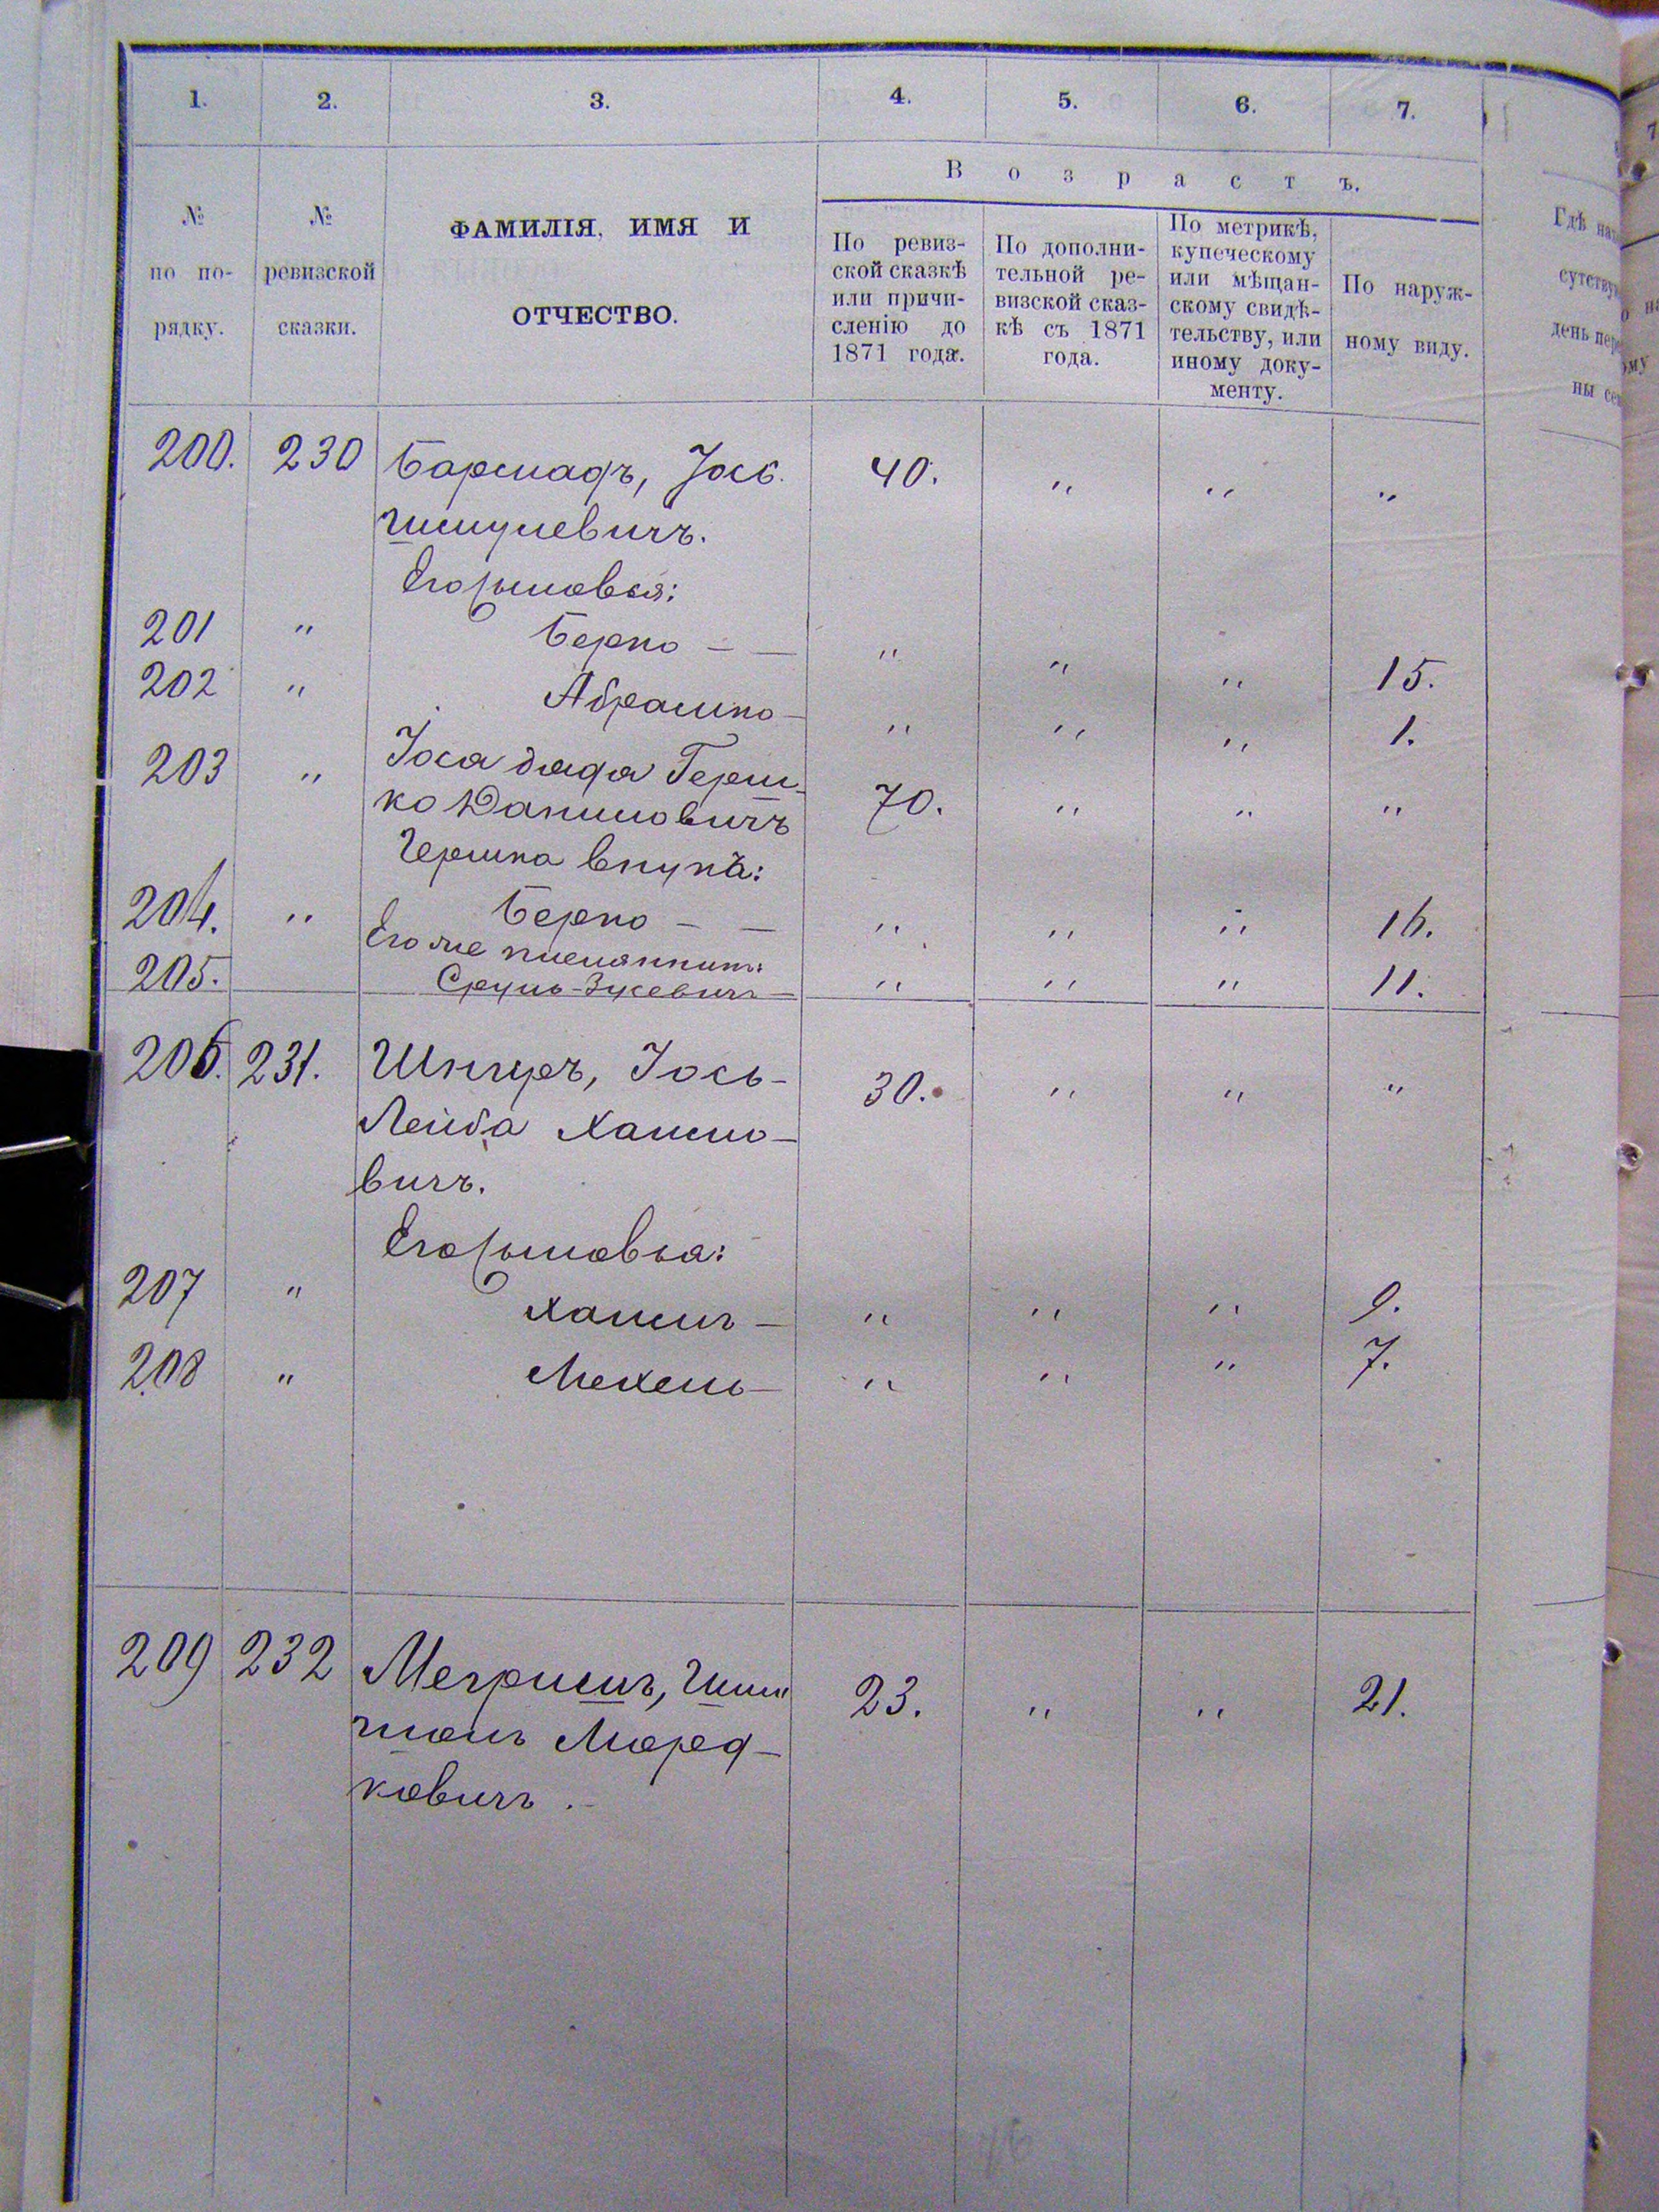 1. 2. 3. 4. 5. 6. 7.
Возрастъ.
№ по порядку.
№ ревизской сказки.
ФАМИЛІЯ, ИМЯ И
ОТЧЕСТВО.
По ревиз-
ской сказкѣ
или причи-
сленію до
1871 года.
По дополни-
тельной ре-
визской сказ-
кѣ съ 1871
года.
По метрикѣ,
купеческому
или мѣщан-
скому свидѣ-
тельству, или
иному доку-
менту.
По наруж-
ному виду.
200. 230 Бармадъ, Jось 40. " " "
Шмулевичъ.
Его сыновья:
201 " Берко — — " " " 15.
202 " Абрамко — " " " 1.
203 " Іоса дядя Герш-
ко Даниловичъ 70. " " "
Гершка внукъ:
204. " Берко — — " " " 16.
Его же племянникъ:
205. Сруль Зусевичъ — " " " 11.
206. 231. Шниръ, Іось- 30. " " "
Лейба Хаимо-
вичъ.
Его сыновья:
207 " Хаимъ — " " " 9.
208 " Мехель — " " " 7.
209 232 Мегримъ, Шли 23. " " 21.
Моред-
ковичъ.